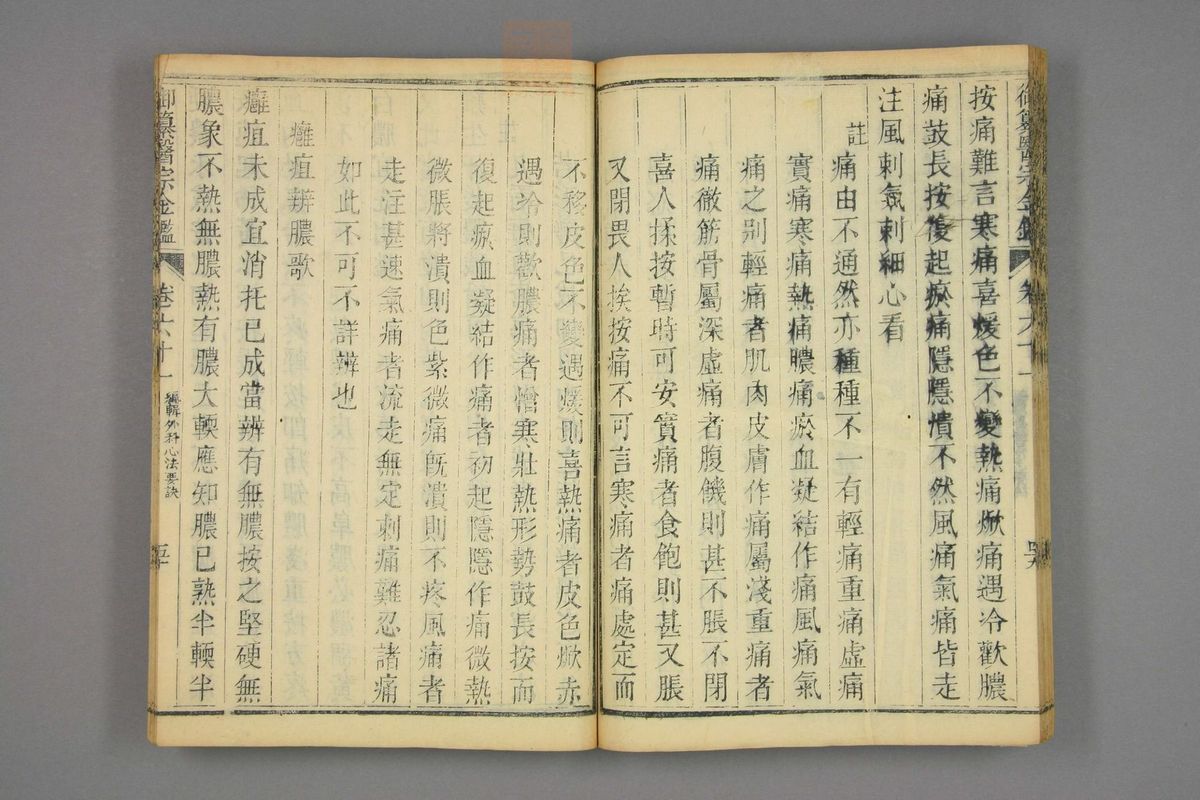 按痛難言寒痛喜煖色不變熱痛焮痛遇冷歡膿
痛鼓長按復起瘀痛隱隱潰不然風痛氣痛皆走
注風刺氣刺細心看
註
痛由不通然亦種種不一有輕痛重痛虛痛
實痛寒痛熱痛膿痛瘀血凝結作痛風痛氣
痛之别輕痛者肌肉皮膚作痛屬淺重痛者
痛徹筋骨屬深虛痛者腹饑則甚不脹不閉
喜人揉按暫時可安實痛者食飽則甚又脹
又閉畏人挨按痛不可言寒痛者痛處定而
不移皮色不變遇煖則喜熱痛者皮色焮赤
遇冷則歡膿痛者憎寒壯熱形勢鼓長按而
復起瘀血凝結作痛者初起隱隱作痛微熱
微脹將潰則色紫微痛旣潰則不疼風痛者
走注甚速氣痛者流走無定刺痛難忍諸痛
如此不可不詳辨也
癰疽辨膿歌
癰疽未成宜消托已成當辨有無膿按之堅硬無
膿象不熱無膿熱有膿大輭應知膿已熟半輭半
御纂醫宗金鑑
卷六十一
編輯外科心法要訣
五十